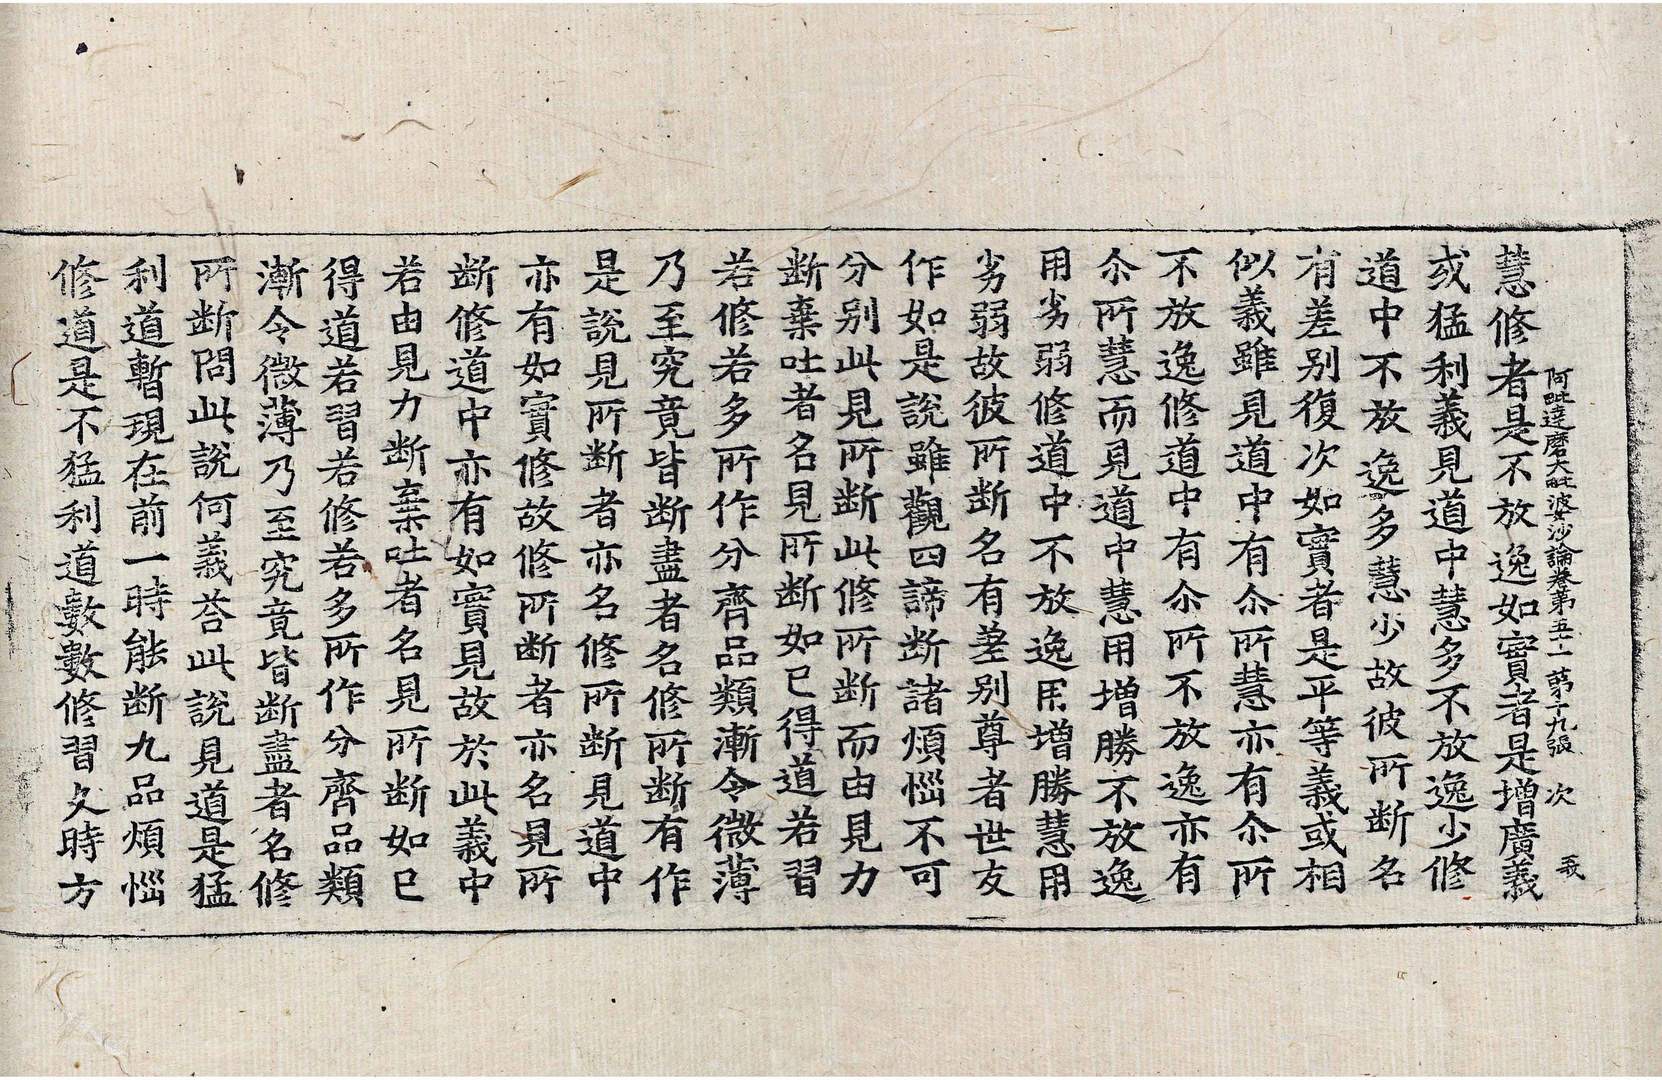 阿毗達磨大毗婆沙論卷第五十一 第十九張 次
慧修者是不放逸如實者是增廣義
或猛利義見道中慧多不放逸少修
道中不放逸多慧少故彼所断名
有差别復次如實者是平等義或相
似義雖見道中有尒所慧亦有尒所
不放逸修道中有尒所不放逸亦有
尒所慧而見道中慧用增勝不放逸
用劣弱修道中不放逸用增勝慧用
劣弱故彼所断名有差别尊者世友
作如是說雖觀四諦断諸煩惱不可
分别此見所断此修所断而由見力
断棄吐者名見所断如已得道若習
若修若多所作分齊品類漸令微薄
乃至究竟皆断盡者名修所断有作
是說見所断者亦名修所断見道中
亦有如實修故修所断者亦名見所
断修道中亦有如實見故於此義中
若由見力断棄吐者名見所断如已
得道若習若修若多所作分齊品類
漸令微薄乃至究竟皆断盡者名修
所断問此說何義荅此說見道是猛
利道暫現在前一時能断九品煩惱
修道是不猛利道數數修習久時方